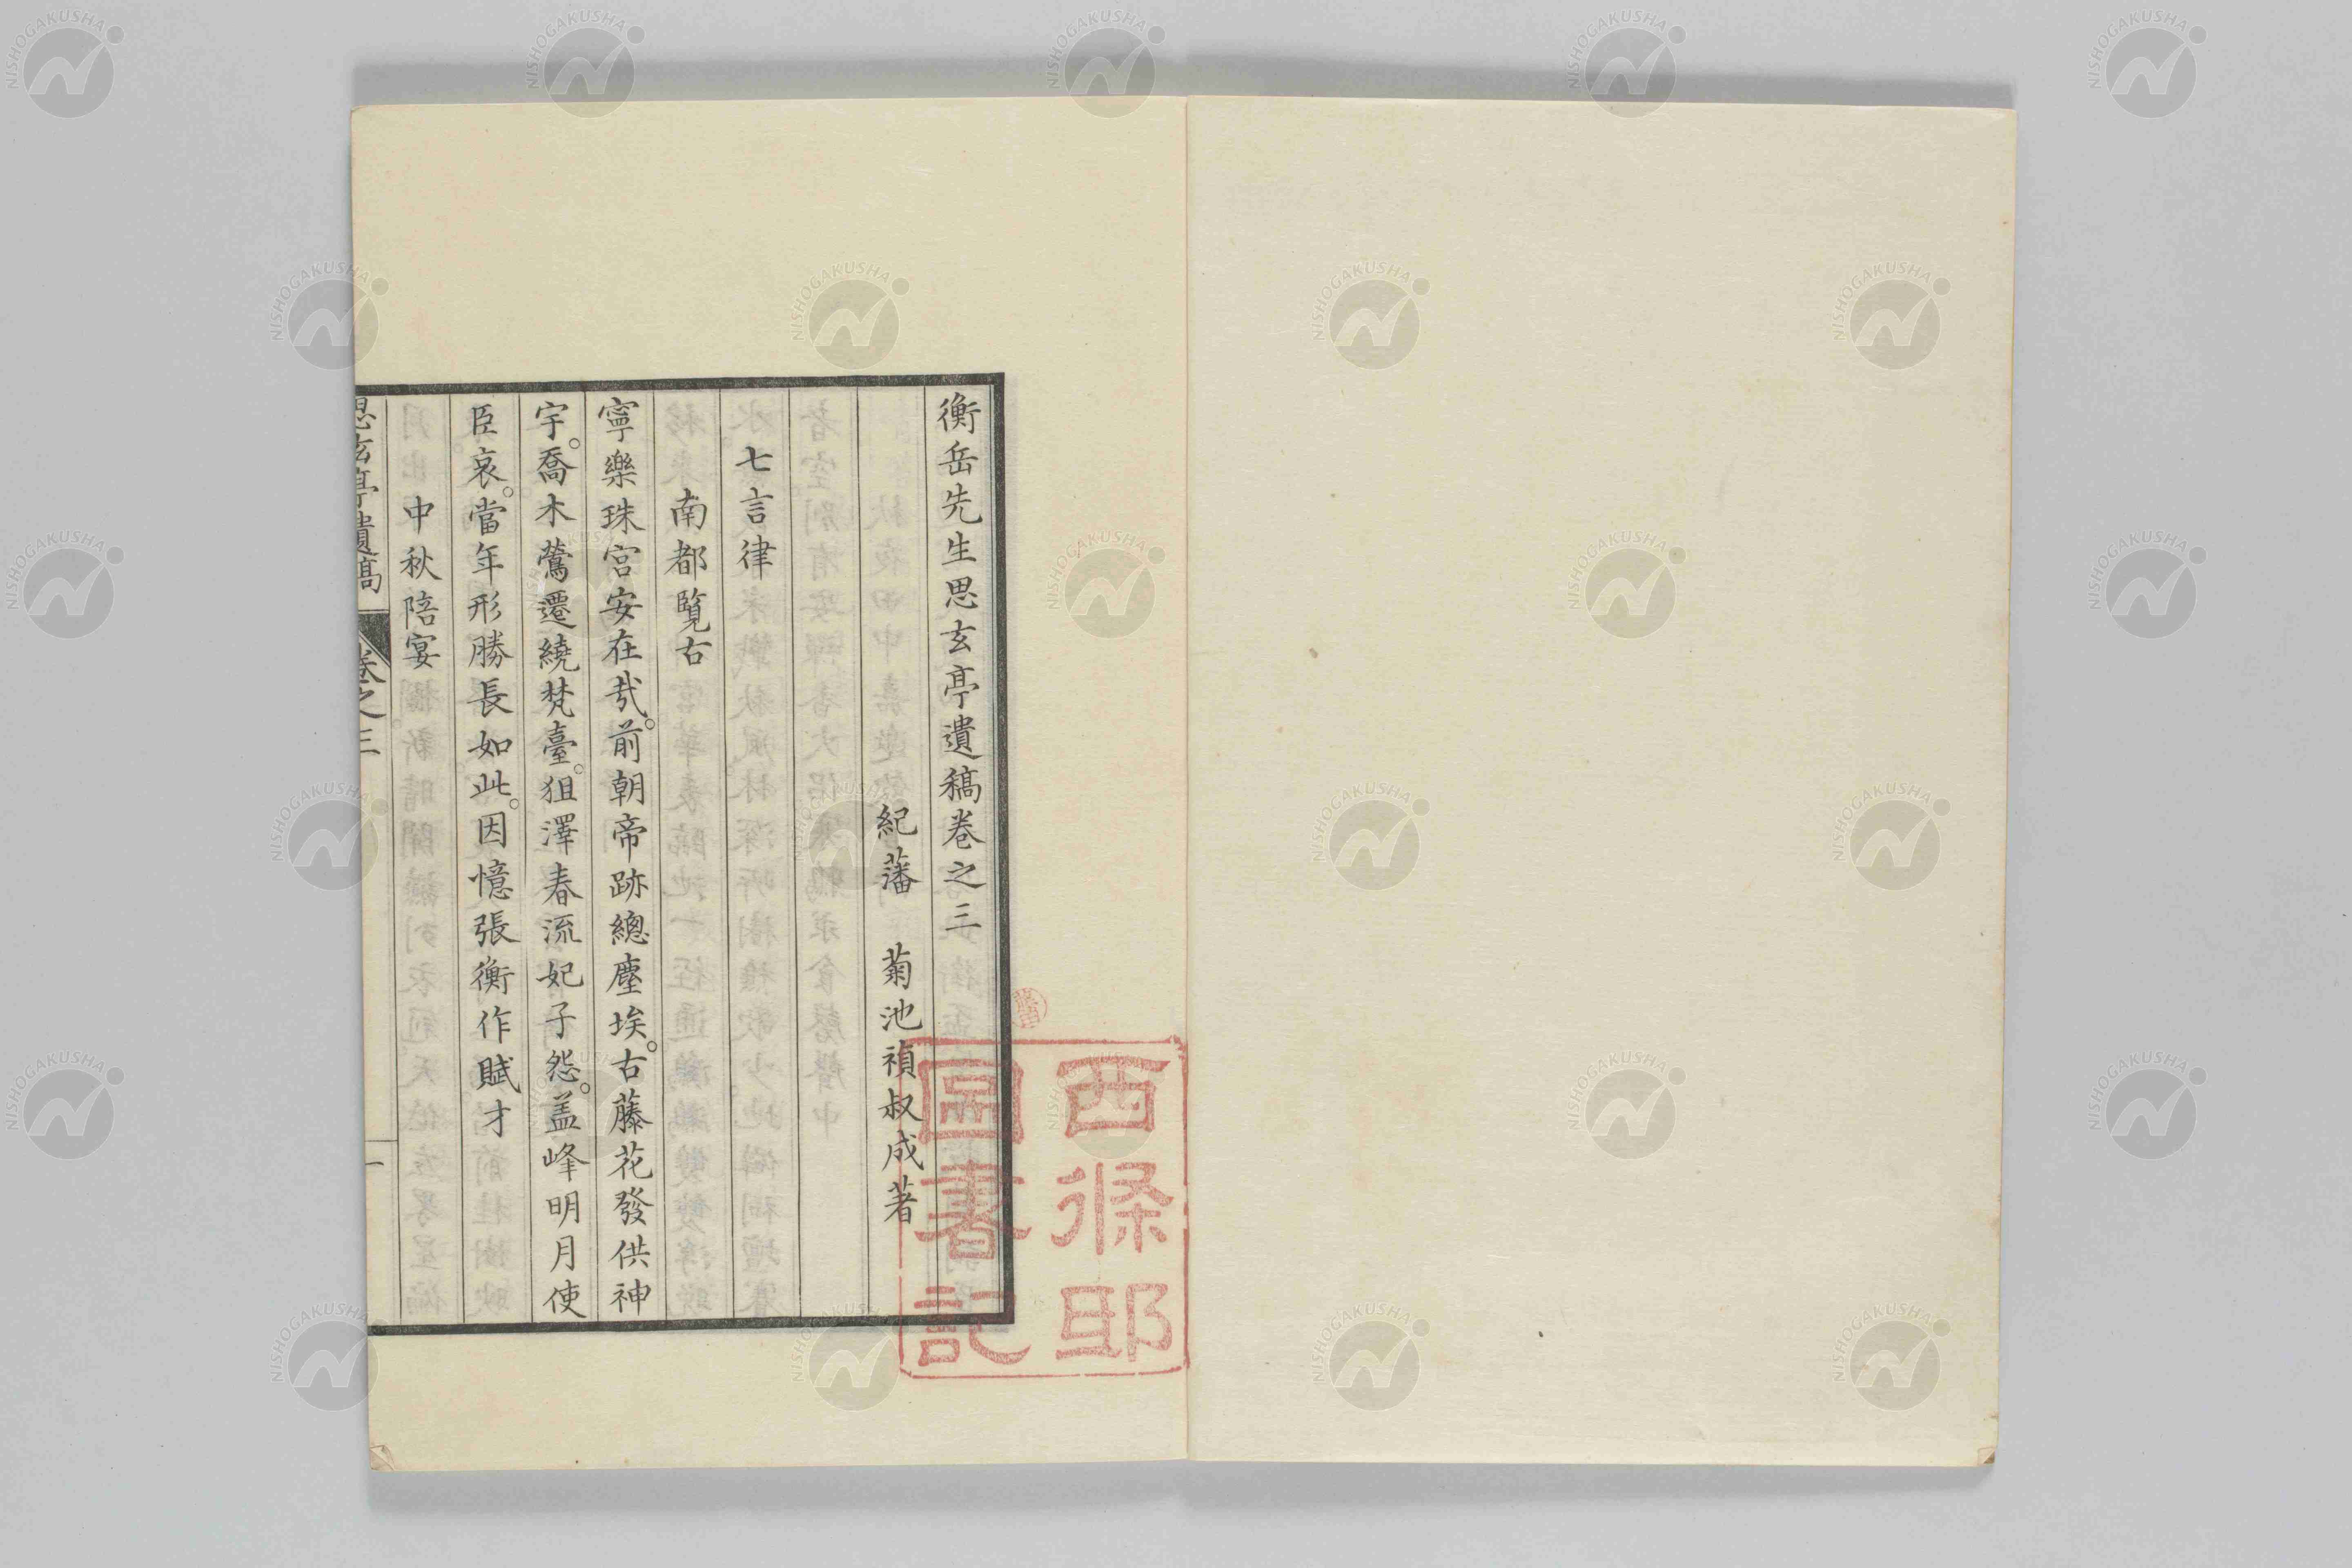 衡岳先生思玄亭遺稿卷之三
紀藩　菊池禎叔成著
七言律
南都覧古
寧樂珠宮安在哉。前朝帝跡總塵埃。古藤花發供神
宇。喬木鶯遷繞梵臺。狙澤春流妃子怨。盖峰明月使
臣哀。當年形勝長如此。因憶張衡作賦才
中秋陪宴
思玄亭遺稿　卷之三　一
西條邸
圖書記
NISHOGAKUSHA